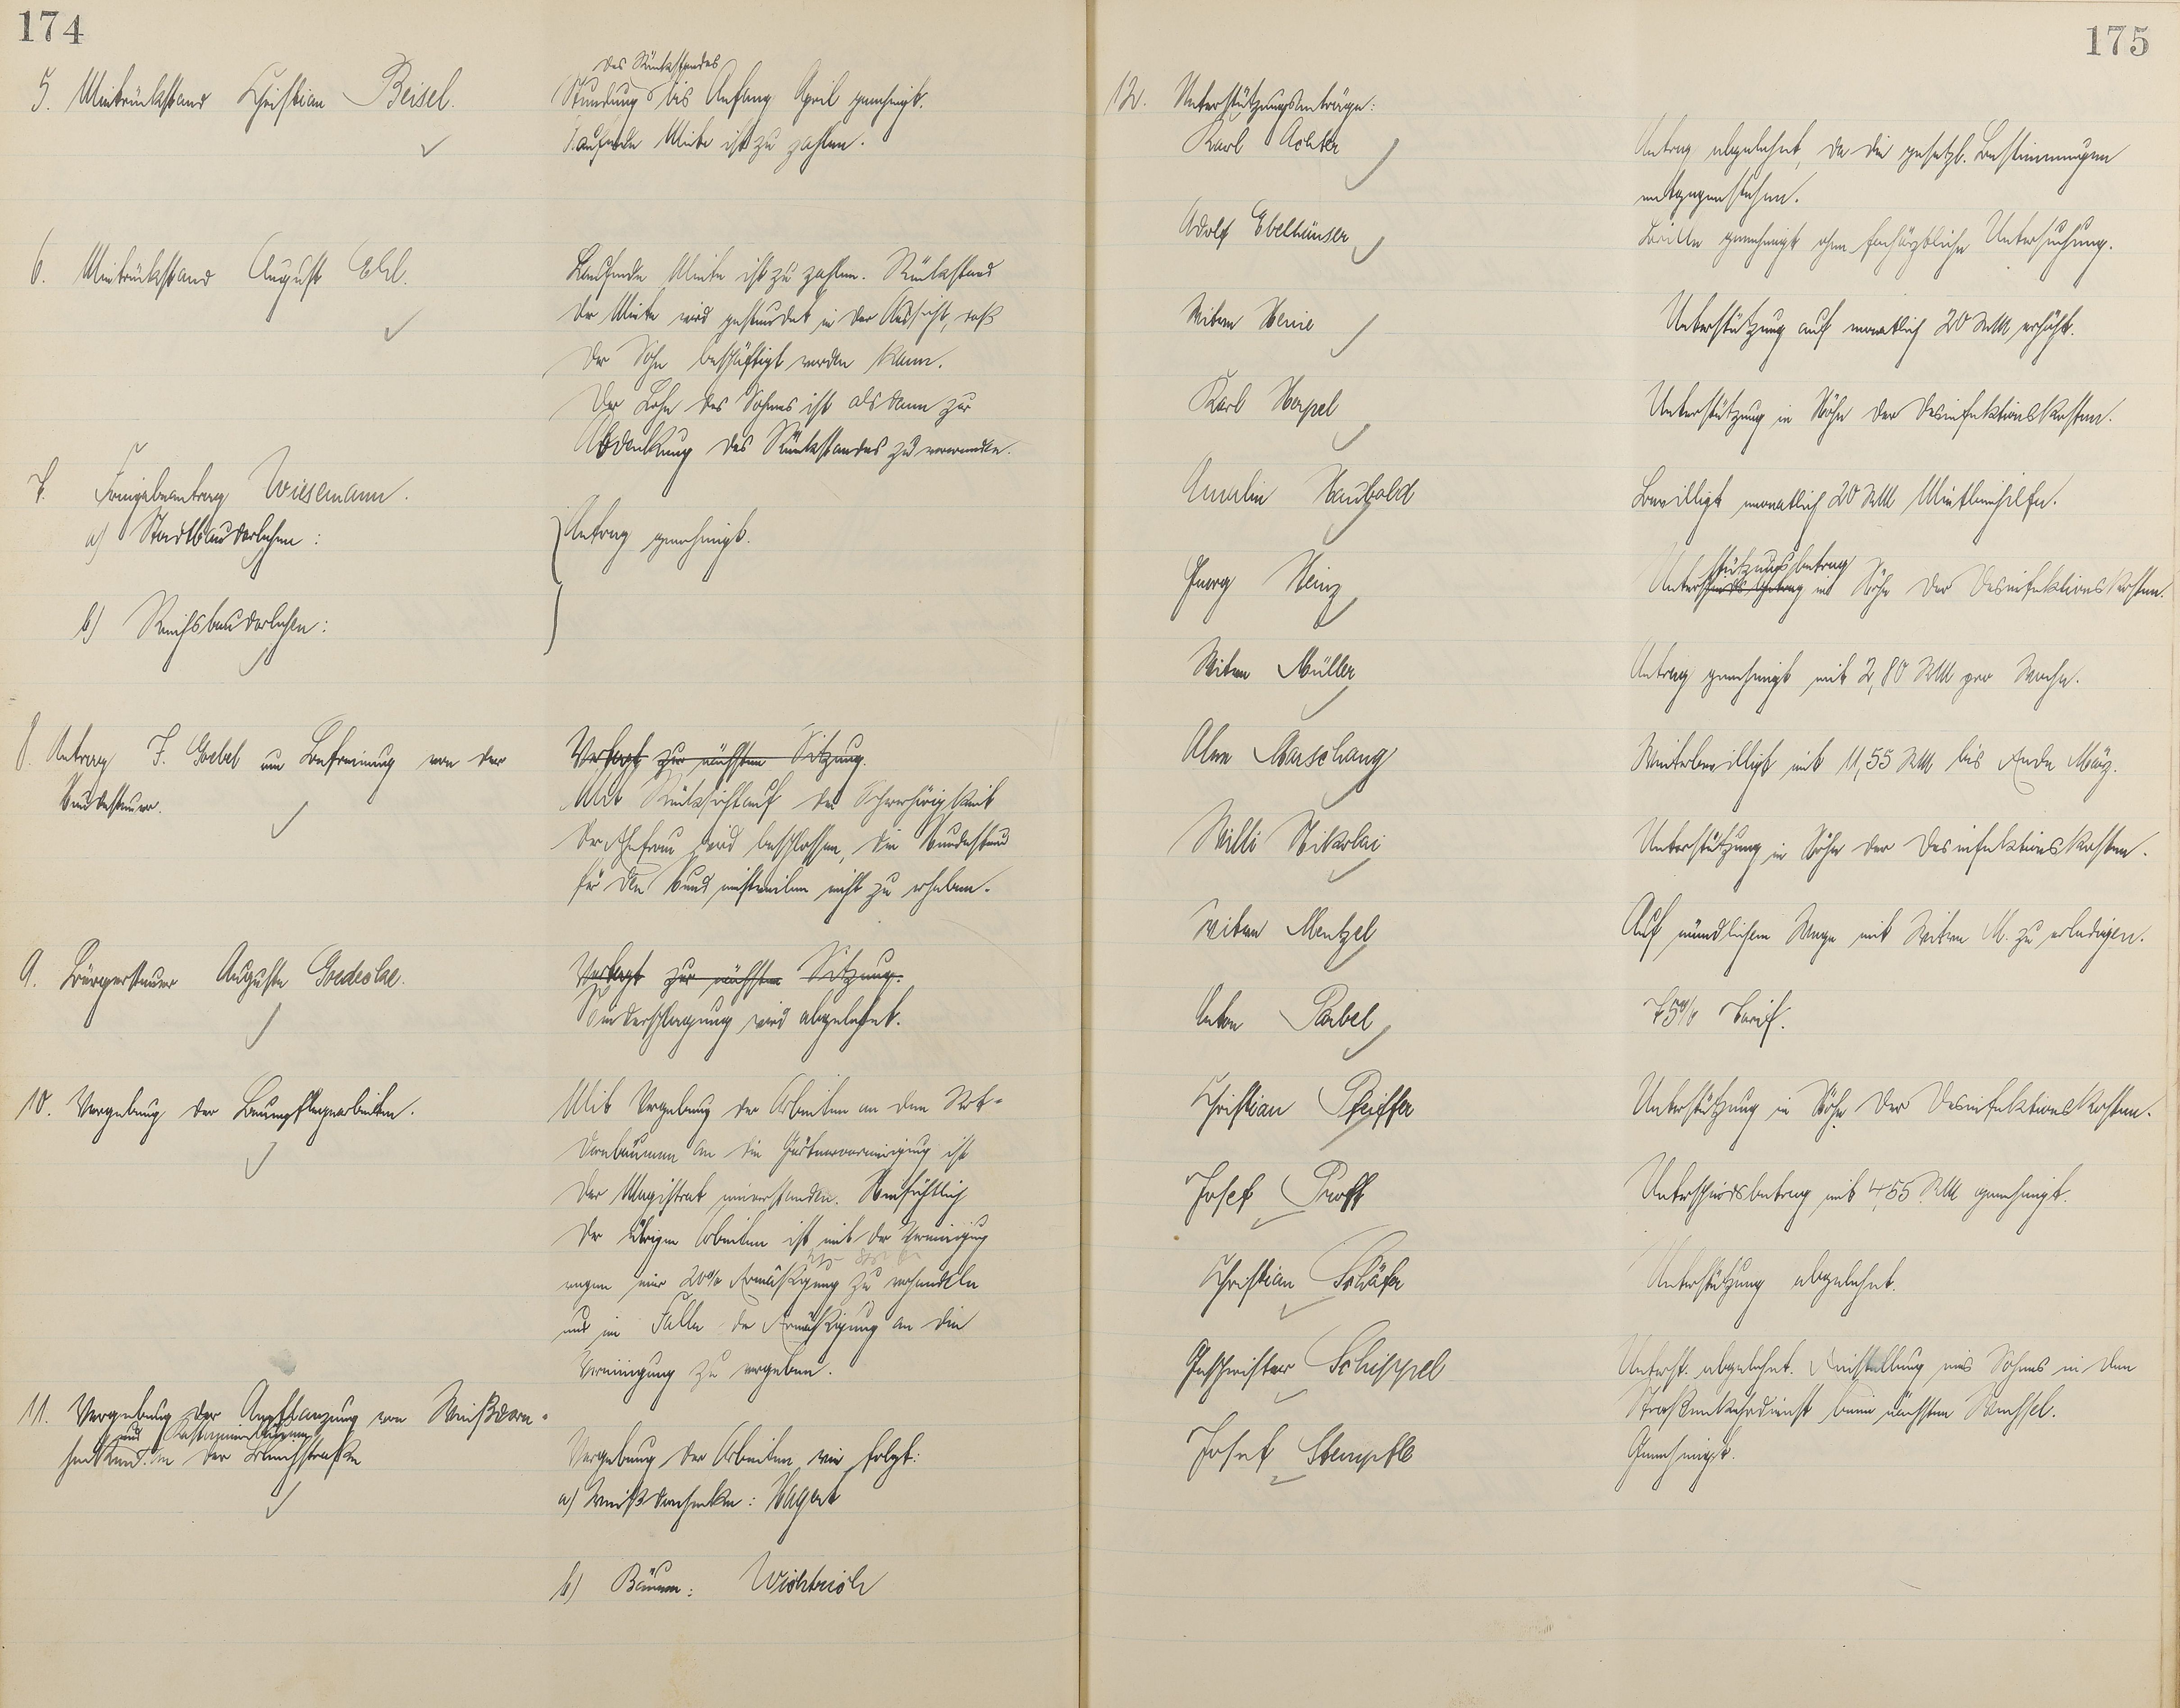 174
5. Mietrückstand Christian Beisel.
des Rückstandes
Stundung bis Anfang April genehmigt.
Laufende Miete ist zu zahlen.
6. Mietrückstand August Ehl.
Laufende Miete ist zu zahlen. Rückstand
der Miete wird gestundet in der Aussicht, daß
der Sohn beschäftigt werden kann.
Der Lohn des Sohnes ist alsdann zur
Abdeckung des Rückstandes zu verwenden.
7. Freigabeantrag Wiesemann.
a) Stadtbaudarlehen:
Antrag genehmigt.
b) Reichsbaudarlehen:
8. Antrag F. Goebel um Befreiung von der
Hundesteuer.
Vertagt zur nächsten Sitzung.
Mit Rücksicht auf die Schwerhörigkeit
der Ehefrau wird beschlossen, die Hundesteuer
für den Hund einstweilen nicht zu erheben.
9. Bürgersteuer Auguste Goedecke.
Vertagt zur nächsten Sitzung.
Niederschlagung wird abgelehnt.
10. Vergebung der Baumpflegearbeiten.
Mit Vergebung der Arbeiten an den Rot-
dornbäumen an die Gärtnervereinigung ist
der Magistrat einverstanden. Hinsichtlich
der übrigen Arbeiten ist mit der Vereinigung
wegen einer 20% Ermäßigung zu verhandeln
und im Falle der Ermäßigung an die
Vereinigung zu vergeben.
11. Vergebung der Anpflanzung von Weißdorn-
und Kastanienbäumen
hecken in der Bleichstraße
Vergebung der Arbeiten wie folgt:
a) Weißdornhecken: Hagert
b) Bäume: Wichtrich
175
12. Unterstützungsanträge:
Karl Achter
Antrag abgelehnt, da die gesetzl. Bestimmungen
entgegenstehen.
Adolf Ebelhäuser
Brille genehmigt ohne fachärztliche Untersuchung.
Witwe Heine
Unterstützung auf monatlich 20 RM erhöht.
Karl Herpel
Unterstützung in Höhe der Desinfektionskosten.
Amalie Haubold
Bewilligt monatlich 20 RM Mietbeihilfe.
Georg Heinz
stützungsbetrag
Unterschiedsbetrag in Höhe der Desinfektionskosten.
Witwe Müller
Antrag genehmigt mit 2,80 RM pro Woche.
Alwe Marschang
Weiterbewilligt mit 11,55 RM bis Ende März.
Willi Nikolai
Unterstützung in Höhe der Desinfektionskosten.
Witwe Mentzel
Auf mündlichem Wege mit Witwe M. zu erledigen.
Anton Pabel
75% Tarif.
Christian Pfeiffer
Unterstützung in Höhe der Desinfektionskosten.
Josef Proff
Unterschiedsbetrag mit 4,55 RM genehmigt.
Christian Schäfer
Unterstützung abgelehnt.
Geschwister Schippel
Unterst. abgelehnt. Einstellung eines Sohnes in den
Straßenkehrdienst beim nächsten Wechsel.
Josef Stempfle
Genehmigt.